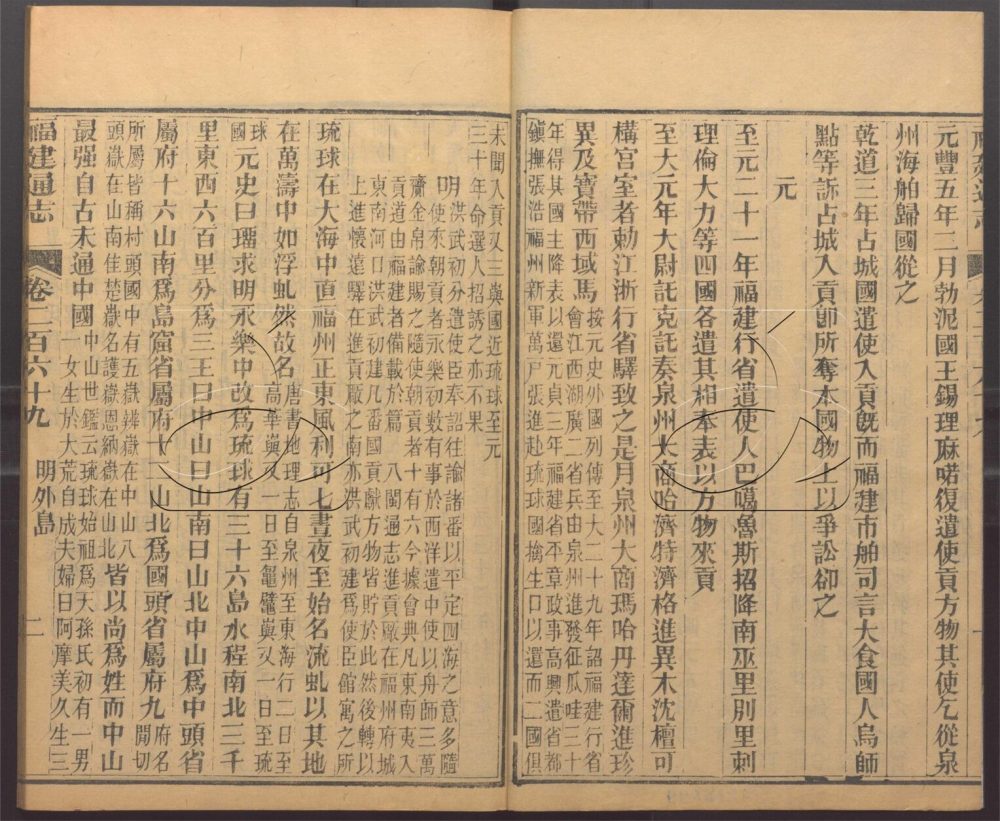 元豐五年二月勃泥國王錫理麻喏復遣使貢方物其使乞從泉
州海舶歸國從之
乾道三年占城國遣使入貢旣而福建市舶司言大食國人烏師
點等訴占城入貢卽所奪本國物上以爭訟卻之
元
至元二十一年福建行省遣使人巴噶魯斯招降南巫里別里剌
理倫大力等四國各遣其相奉表以方物來貢
至大元年大尉託克託奏泉州大商哈濟特濟格進異木沈檀可
構宫室者勅江浙行省驛致之是月泉州大商瑪哈丹達爾進珍
異及寶帶西域馬
按元史外國列傳至大二十九年詔福建行省
會江西湖廣二省兵由泉州進發征瓜哇三十
年得其國主降表以還元貞三年福建省平章政事高興遣省都
鎮撫張浩福州新軍萬戸張進赴琉球國擒生口以還而二國俱
未聞入貢又三嶼國近琉球至元
三十年命選人招誘之亦不果
明
洪武初分遣使臣奉詔往諭諸番以平定四海之意多隨
使來朝貢者永樂初數有事於西洋遣中使以舟師三萬
齎金帛諭賜之隨使朝貢者十有六今據會典凡東南夷入
貢道由福建者備載於篇
八閩通志進貢廠在福州府城
東南河口洪武初建凡番國貢獻方物皆貯於此然後轉以
上進懷遠驛在進貢廠之南亦洪武初建爲使臣館寓之所
琉球在大海中直福州正東風利可七晝夜至始名流虬以其地
在萬濤中如浮虬然故名
唐書地理志自泉州至東海行二日至
高華嶼又一日至鼊嶭嶼又一日至琉
球
國
元史曰瑠求明永樂中改爲琉球有三十六島水程南北三千
里東西六百里分爲三王曰中山曰山南曰山北中山爲中頭省
屬府十六山南爲島窟省屬府十二山北爲國頭省屬府九
府名
閒切
所屬皆稱村頭國中有五嶽辨嶽在中山八
頭嶽在山南佳楚嶽名護嶽恩納嶽在山北
皆以尚爲姓而中山
最强自古未通中國
中山世鑑云琉球始祖爲天孫氏初有一男
一女生於大荒自成夫婦曰阿摩美久生三
福建通志
卷二百六十九
明外島
二